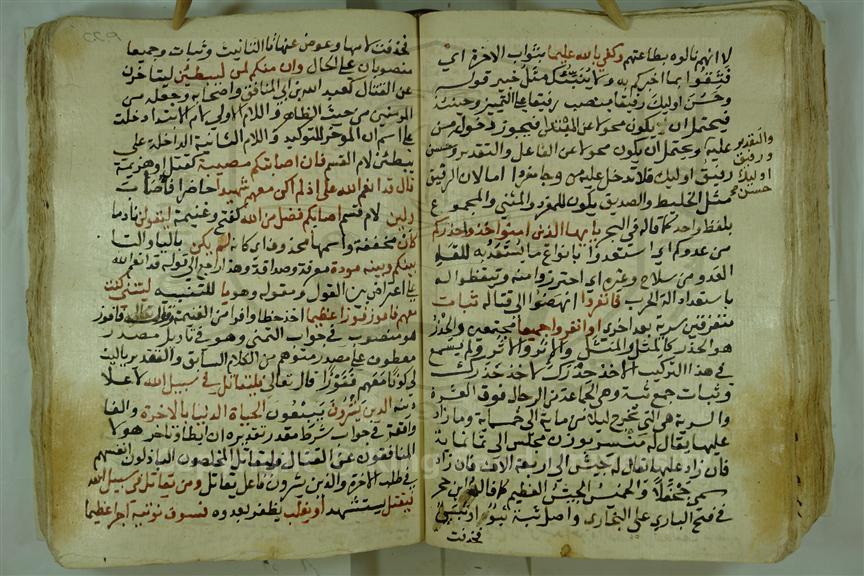 لا انهم نالوه بطاعتهم وكفى بالله عليما بثواب الاخرة اي
فثقوا بما اخبركم به ولا ينبئك مثل خبير قوله
وحسن اوليك رفيقا منصب رفيقا على التمييز وحينئذ
فيحتمل ان يكون محولا عن المبتدا فيجوز دخول من
عليه ويحتمل ان يكون محولا عن الفاعل والتقدير وحسن
رفيق اوليك فلا تدخل عليه من وجاء مفردا اما لان الرفيق
مثل الخليط والصديق يكون للمفرد والمثنى والمجموع
بلفظ واحد كما قاله في البحر يايها الذين امنوا خذوا حذركم
من عدوكم اي استعدوا بانواع ما يستعد به للقاء
العدو من سلاح وغيره اي احترزوا منه وتيقظوا له
باستعداد الة الحرب فانفروا انهضوا الى قتاله ثبات
متفرقين سرية بعد اخرى او انفروا جميعا مجتمعين والحذر
هو الحذر كالمثل والمثل والاثر والاثر ولم يسمع
في هذا التركيب الا خذ حذرك لا خذ حذرك
وثبات جمع ثبة وهي الجماعة من الرجال فوق العشرة
والسرية هي التي تخرج ليلا من ماية الى خمسماية وما زاد
عليها يقال له منسر بوزن مجلس الى ثمانماية
فان زاد عليها يقال له جيش الى اربعة الاف فان زاد
سمي جحفلا والخميس الجيش العظيم كما قاله ابن حجر
في فتح الباري على البخاري واصل ثبة ثبو او ثبي
فحذفت
والتقدير
ورفيق
اوليك
حسن صح
فحذفت لامها وعوض عنها تا التانيث وثبات وجميعا
منصوبان على الحال وان منكم لمن ليبطين ليتاخرن
عن القتال كعبد الله بن ابي المنافق واصحابه وجعله من
المومنين من حيث الظاهر واللام الاولى لام الابتدا دخلت
على اسم ان الموخر للتوكيد واللام الثانية الداخلة على
يبطين لام القسم فان اصابتكم مصيبة كقتل او هزيمة
قال قد انعم الله علي اذ لم اكن معهم شهيدا حاضرا فاصاب
ولين لام قسم اصابكم فضل من الله كفتح وغنيمة ليقولن نادما
كان مخففة واسمها محذوف اي كانه لم يكن باليا والتا
بينكم وبينه مودة معرفة وصداقة وهذا راجع الى قوله قد انعم الله
علي اعتراض بين القول ومقوله وهو يا للتنبيه ليتني كنت
معهم فافوز فوزا عظيما اخذ حظا وافرا من الغنيمة فافوز
هو منصوب في جواب التمني وهو في تاويل مصدر
معطوف على مصدر متوهم من الكلام السابق والتقدير ياليت
لي كونا معهم ففوزا قال تعالى فليقاتل في سبيل الله لاعلا
دينه الذين يشرون يبيعون الحياة الدنيا بالاخرة والفا
واقعة في جواب شرط مقدر تقديره ان ابطا وتاخر هولا
المنافقون عن القتال فليقاتل المخلصون الباذلون انفسهم
في طلب الاخرة والذين يشرون فاعل يقاتل ومن يقاتل في سبيل الله
فيقتل يستشهد او يغلب يظفر بعدوه فسوف نوتيه اجرا عظيما